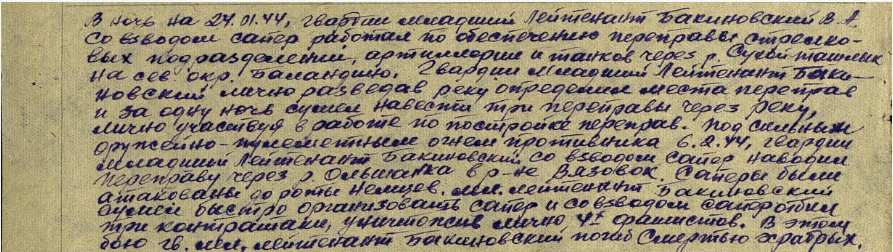 В ночь на 24.01.44, гвардии младший лейтенант Бакиновский В.А.
со взводом сапер работал по обеспечению переправы стрелко-
вых подразделений, артиллории и танков через р. Сухой Ташлык
на сев. окр. Баландино. Гвардии младший лейтенант Баки-
новский лично разведав реку определил места переправ
и за одну ночь сумел навести три переправы через реку,
лично участвуя в работе по постройке переправ. Под сильным
оружейно-пулеметным огнем противника 6.2.44, гвардии
младший лейтенант Бакиновский со взводом сапер наводил
переправу через р. Ольшанка в р-не Вязовок. Саперы были
атакованы до роты немцев. Мл. лейтенант Бакиновский
сумел быстро организовать сапер и со взводом сапер отбил
три контратаки, уничтожив лично фашистов. В этом
бою гв. мл. лейтенант Бакиновский погиб смертью храбрых.